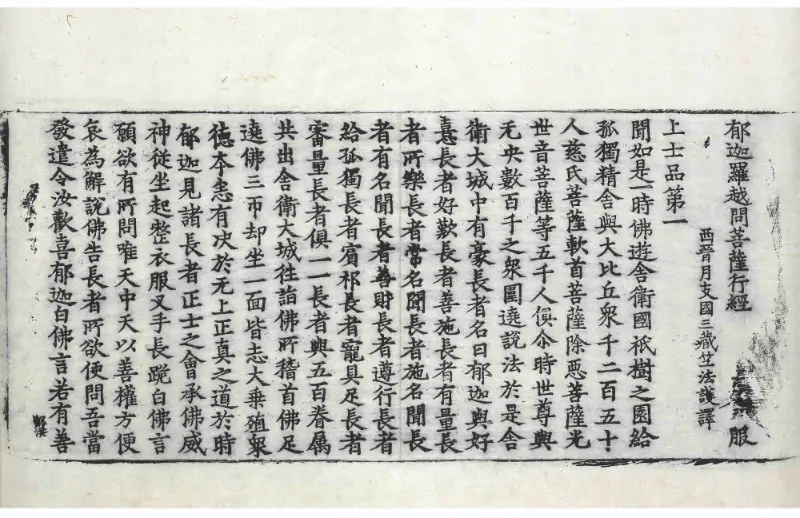 郁迦羅越問菩薩行經 服
西晉月支國三藏竺法護譯
上士品第一
聞如是一時佛遊舍衛國祇樹之園給
孤獨精舍與大比丘衆千二百五十
人慈氏菩薩軟首菩薩除惡菩薩光
世音菩薩等五千人俱尒時世尊與
无央數百千之衆圍遶說法於是舍
衛大城中有豪長者名曰郁迦與好
憙長者好歎長者善施長者有量長
者所樂長者常名聞長者施名聞長
者有名聞長者善財長者遵行長者
給孤獨長者賓祁長者寵具足長者
審量長者俱一一長者與五百眷屬
共出舍衛大城往詣佛所稽首佛足
遶佛三帀却坐一面皆志大乘殖衆
德本悉有决於无上正真之道於時
郁迦見諸長者正士之會承佛威
神從坐起整衣服叉手長跪白佛言
願欲有所問唯天中天以善權方便
哀為解說佛告長者所欲便問吾當
發遣令汝歡喜郁迦白佛言若有善